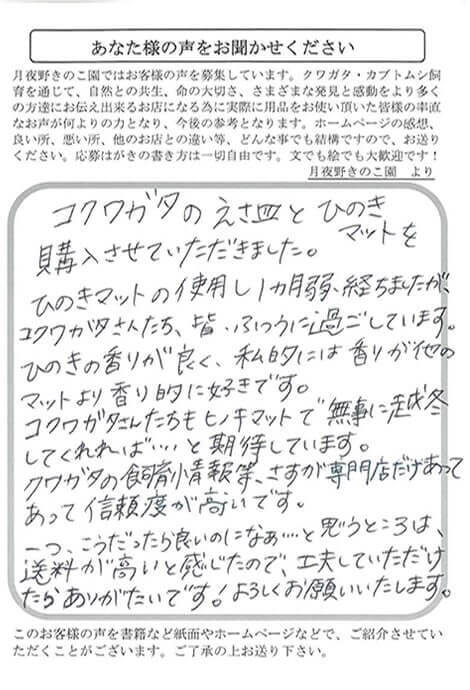 あなた様の声をお聞かせください
月夜野きのこ園ではお客様の声を募集しています。クワガタ・カブトムシ飼
育を通じて、自然との共生、命の大切さ、さまざまな発見と感動をより多く
の方達にお伝え出来るお店になる為に実際に用品をお使い頂いた皆様の率直
なお声が何よりの力となり、今後の参考となります。ホームページの感想、
良い所、悪い所、他のお店との違い等、どんな事でも結構ですので、お送り
ください。応募はがきの書き方は一切自由です。文でも絵でも大歓迎です！
月夜野きのこ園　より
コクワガタの えさ皿と ひのき
マットを
購入させていただきました。
ひのきマットの使用し1カ月弱、経ちましたが、
コクワガタさんたち、皆、ふつうに過ごしています。
ひのきの香りが良く、私的には香りが他の
マットより香り的に好きです。
コクワガタさんたちもヒノキマットで無事に越冬
してくれれば…と期待しています。
クワガタの飼育情報等、さすが専門店だけあって
あって信頼度が高いです。
一つ、こうだったら良いのになぁ…と思うところは、
送料が高いと感じたので、工夫していただけ
たらありがたいです！よろしくお願いいたします。
このお客様の声を書籍など紙面やホームページなどで、ご紹介させてい
ただくことがございます。ご了承の上お送り下さい。